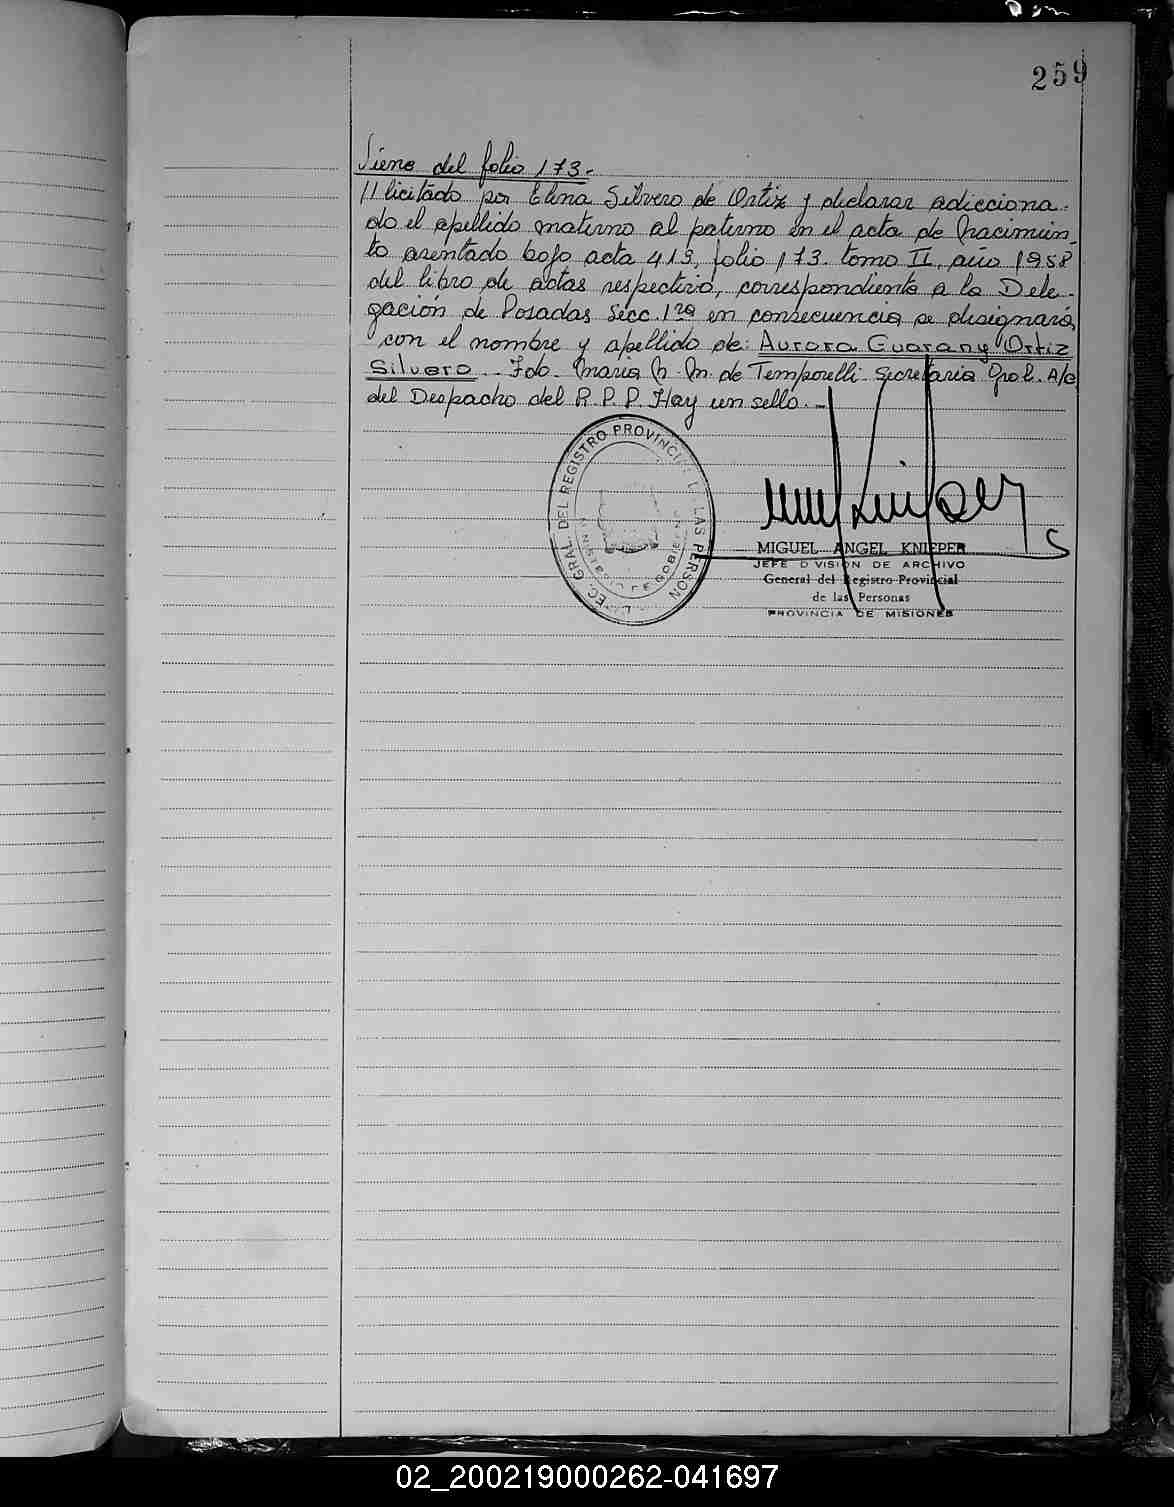 259
Viene del folio 173.-
//licitado por Elina Silvero de Ortiz y declarar adicciona-
do el apellido materno al paterno en el acta de nacimien-
to asentado bajo acta 413, folio 173. tomo II, año 1958
del libro de actas respectivo, correspondiente a la Dele-
gación de Posadas Secc. 1ra en consecuencia se designará
con el nombre y apellido de: Aurora Guarany Ortiz
Silvero.- Fdo. María M. M. de Temporelli Secretaria Gral. A/c
del Despacho del R.P.P. Hay un sello.-
GRAL. DEL REGISTRO PROVINCIAL DE LAS PERSON
MIGUEL ANGEL KNIEPER
JEFE DIVISION DE ARCHIVO
General del Registro Provincial
de las Personas
PROVINCIA DE MISIONES
02_200219000262-041697